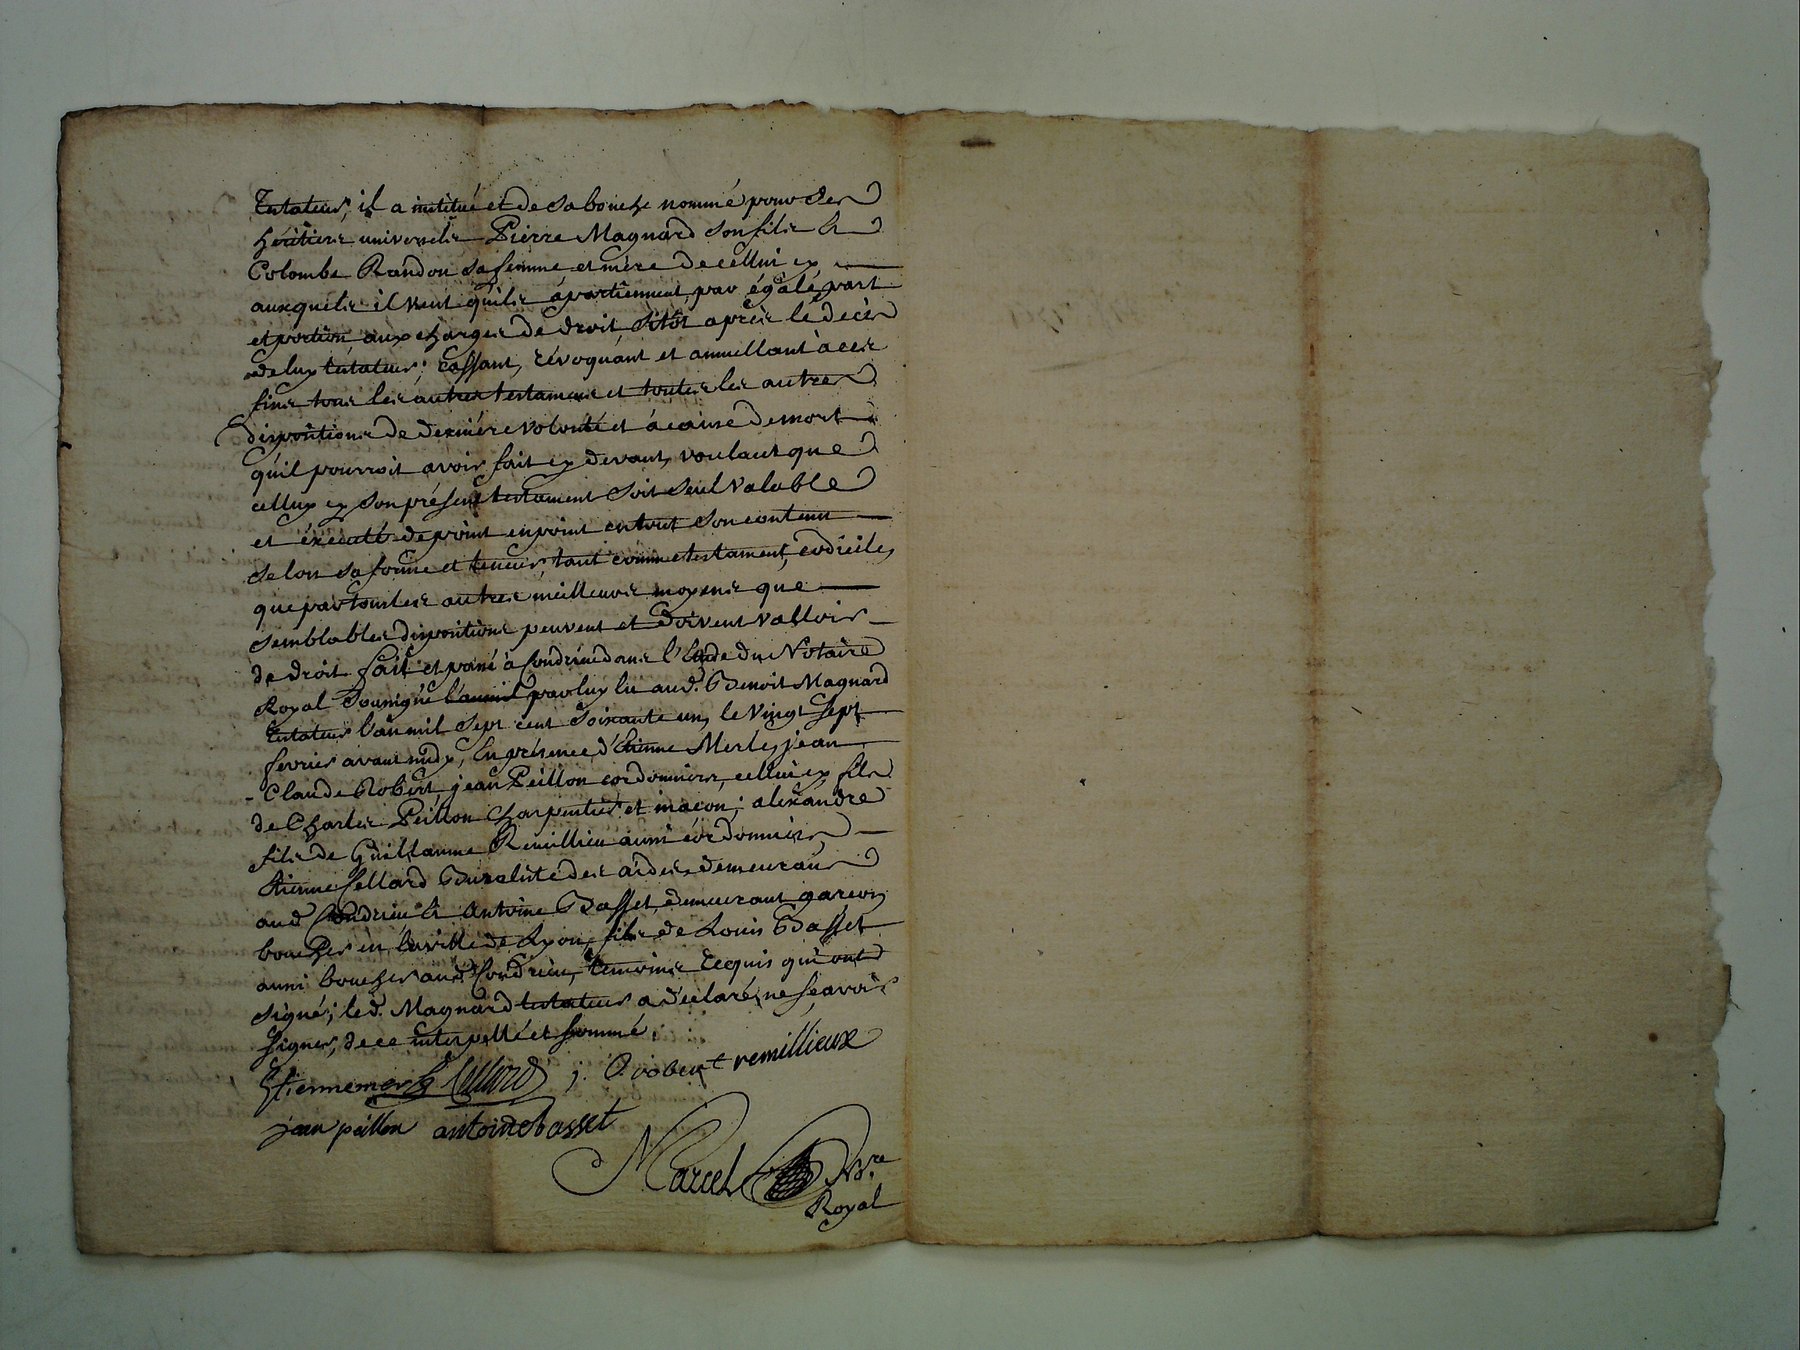 testateur, il a institué et de sa bouche nommé pour ses
héritiers universels Pierre Magnard son fils &
Colombe Randon sa femme et mère de cellui cy
auxquels il veut qu'ils apartiennent par égale part
et portion aux charges de droit sitôt après le décès
de luy testateur; cassant, révoquant et annullant à ces
fins tous les autres testamens et toutes les autres
dispositions de dernière volonté et à cause de mort
qu'il pourroit avoir fait cy devant, voulant que
celluy cy son présent testament soit seul valable
et éxécuté de point en point en tout son contenu
selon sa forme et teneur, tant comme testament, codicile,
que par tous les autres meilleurs moyens que
semblables dispositions peuvent et doivent valloir
de droit. fait et passé à Condrieu dans l'Etude du Notaire
Royal soussigné par luy lu aud. Benoit Magnard
testateur l'an mil sept cent soixante un, le vingt sept
fevrier avant midy, En présence d'Etienne Merle, jean
Claude Robert, jean Peillon cordonniers, cellui cy fils
de Charles Peillon charpentier et maçon; alexandre
fils de Guillaume Remillieu aussi cordonnier,
Etienne Cellard Buraliste des aides, demeurans
aud. Condrieu & Antoine Basset, demeurant garçon
boucher en la ville de Lyon, fils de Louis Basset
aussi boucher aud. Condrieu, témoins requis qui ont
signé; led. Magnard testateur a déclaré ne sçavoir
signer, de ce interpellé et sommé.
Etiennemerle Cellard j. C robert remillieux
jean peillon antoinebasset
Marcel Nre.
Royal